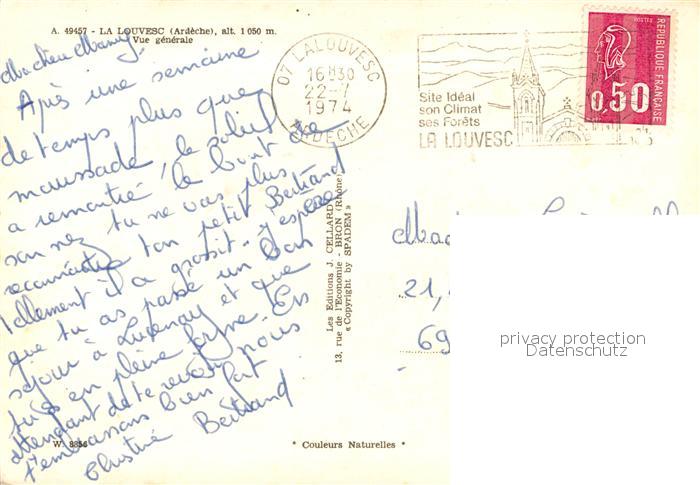 A. 49457 - LA LOUVESC (Ardèche), alt. 1 050 m.
Vue générale
Après une semaine
de temps plus que
maussade, le soleil
a remontré le bout de
son nez. tu ne vas plus
reconnaître ton petit Bertrand
tellement il a grossit. J'espère
que tu as passé un bon
séjour à Lucenay et que
tu es en pleine forme. En
attendant de te revoir, nous
t'embrassons bien fort
Christine Bertrand
W. 8856
Les Editions J. CELLARD
13, rue de l'Economie - BRON (Rhône)
« Copyright by SPADEM »
* Couleurs Naturelles *
07 LALOUVESC
16H30
22-7
1974
ARDECHE
Site Idéal
son Climat
ses Forêts
LA LOUVESC
POSTES
REPUBLIQUE FRANÇAISE
0,50
21,
69
privacy protection
Datenschutz